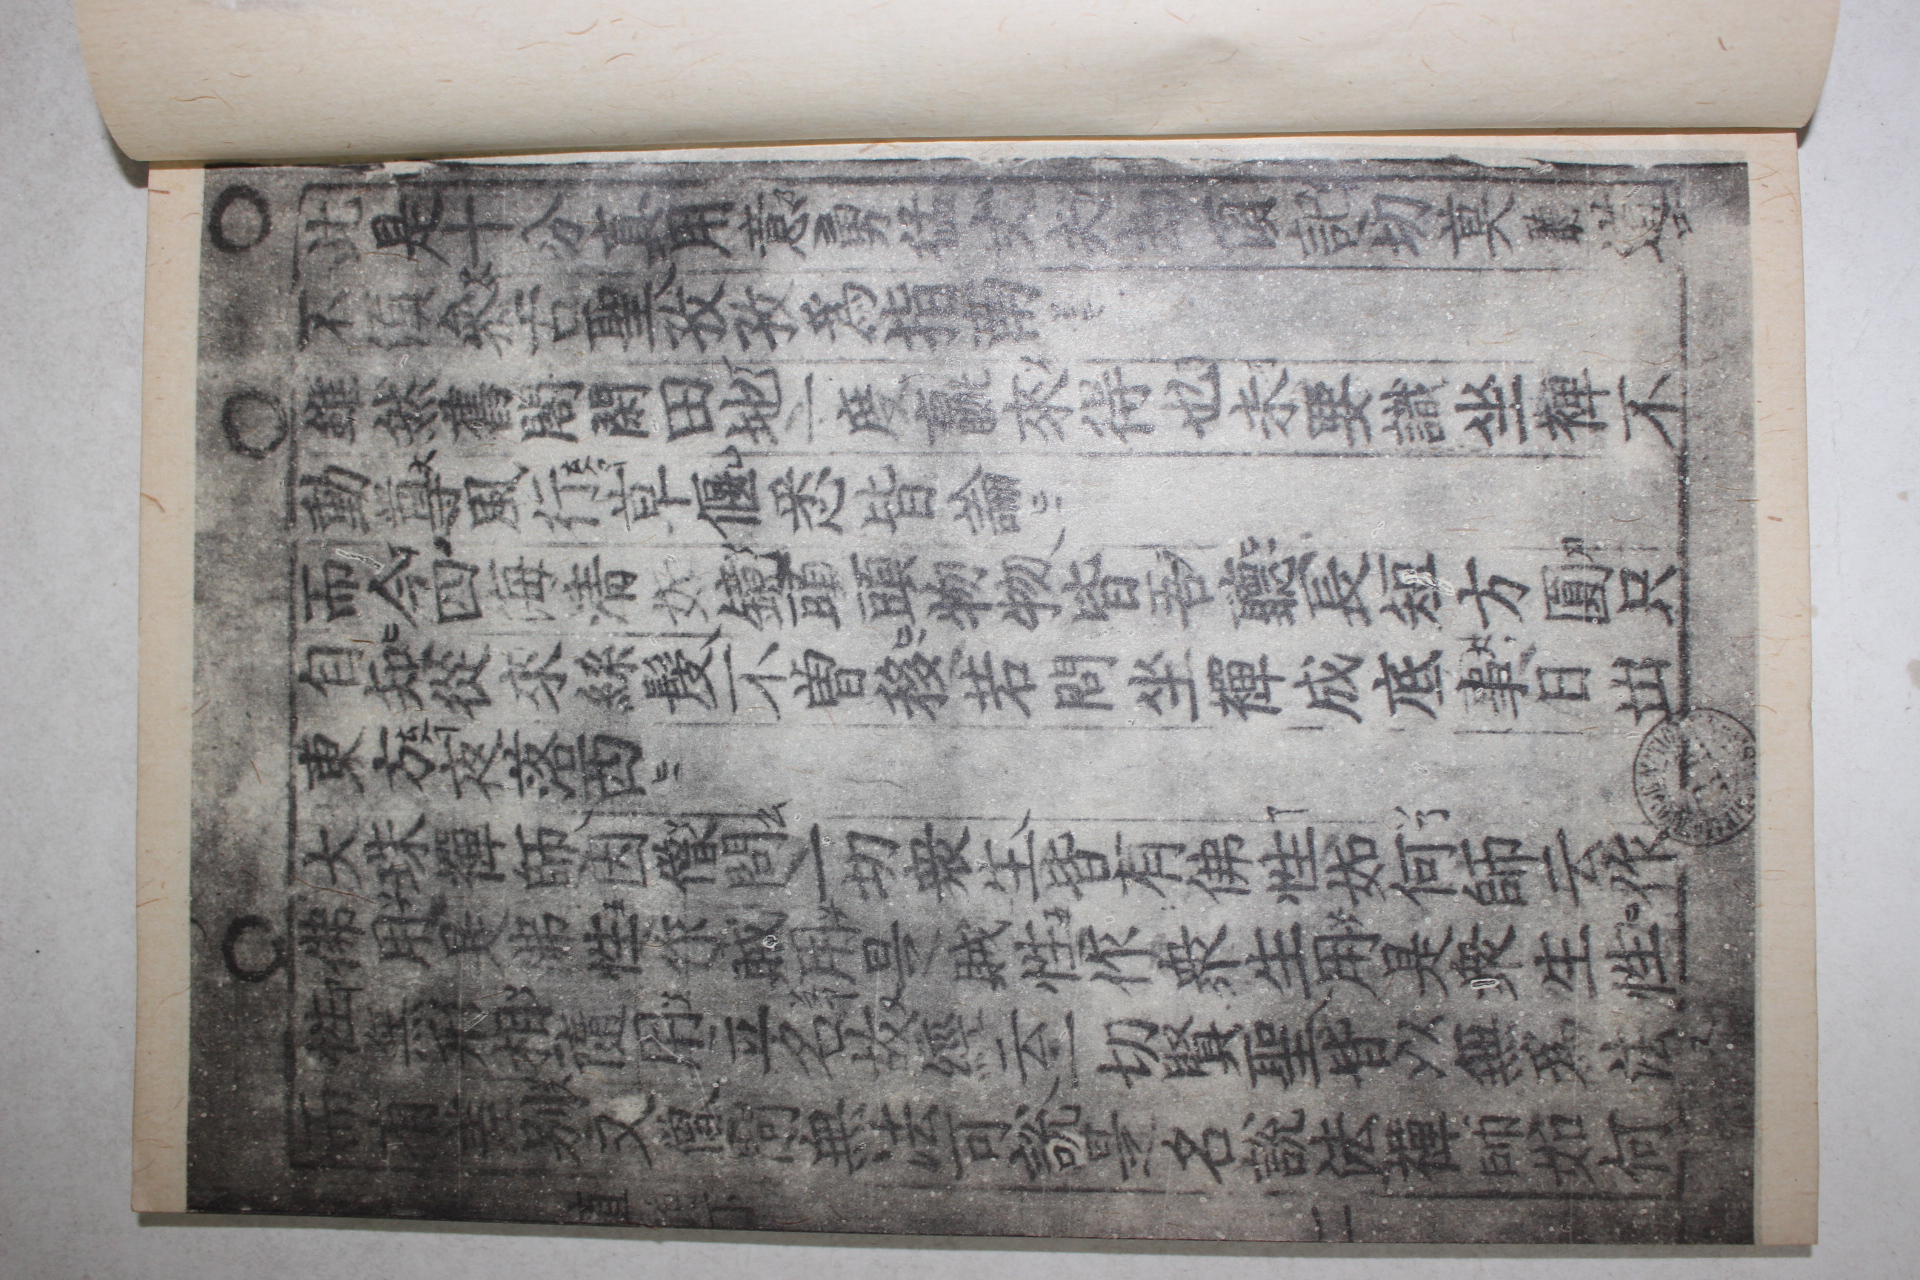 此是十分真用意勇猛丈夫却須記切莫
不須參古聖孜孜爲指南
雖然舊閣閑田地一度贏來得也未要識坐禪不
動尊風行草偃悉皆論
而今四海清如鏡頭頭物物皆吾聽長短方圓只
自知從來絲髮不曾移若問坐禪成底事日出
東方夜落西
大珠禪師因僧問一切衆生皆有佛性如何師云作
佛用是佛性作賊用是賊性作衆生用是衆生性
性無形相隨用立名故經云一切賢聖皆以無爲法
而有差別又僧問無法可說是名說法禪師如何